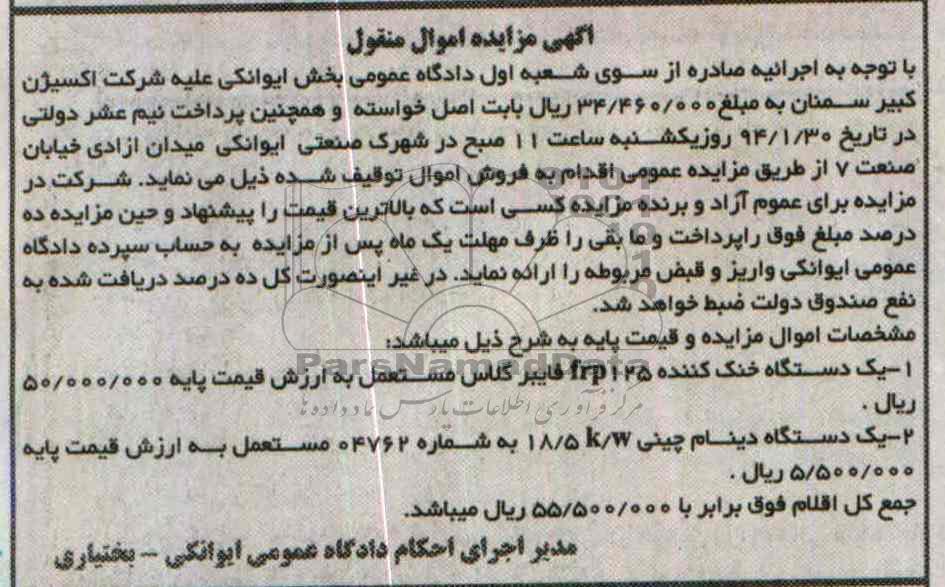 آگهی مزایده اموال منقول
با توجه به اجرائیه صادره از سوی شعبه اول دادگاه عمومی بخش ایوانکی علیه شرکت اکسیژن
کبیر سمنان به مبلغ ۳۴/۴۶۰/۰۰۰ ریال بابت اصل خواسته و همچنین پرداخت نیم عشر دولتی
در تاریخ ۹۴/۱/۳۰ روزیکشنبه ساعت ۱۱ صبح در شهرک صنعتی ایوانکی میدان ازادی خیابان
صنعت ۷ از طریق مزایده عمومی اقدام به فروش اموال توقیف شده ذیل می نماید. شرکت در
مزایده برای عموم آزاد و برنده مزایده کسی است که بالاترین قیمت را پیشنهاد و حین مزایده ده
درصد مبلغ فوق راپرداخت و ما بقی را ظرف مهلت یک ماه پس از مزایده به حساب سپرده دادگاه
عمومی ایوانکی واریز و قبض مربوطه را ارائه نماید. در غیر اینصورت کل ده درصد دریافت شده به
نفع صندوق دولت ضبط خواهد شد.
مشخصات اموال مزایده و قیمت پایه به شرح ذیل میباشد:
ParsNamadData
۱-یک دستگاه خنک کننده frp۱۲۵ فایبر گلاس مستعمل به ارزش قیمت پایه ۵۰/۰۰۰/۰۰۰
ریال .
مرکز فرآوری اطلاعات پارس نماد داده ها
۲-یک دستگاه دینام چینی ۱۸/۵ k/w به شماره ۰۴۷۶۲ مستعمل به ارزش قیمت پایه
۵/۵۰۰/۰۰۰ ریال .
جمع کل اقلام فوق برابر با ۵۵/۵۰۰/۰۰۰ ریال میباشد.
مدیر اجرای احکام دادگاه عمومی ایوانکی – بختیاری